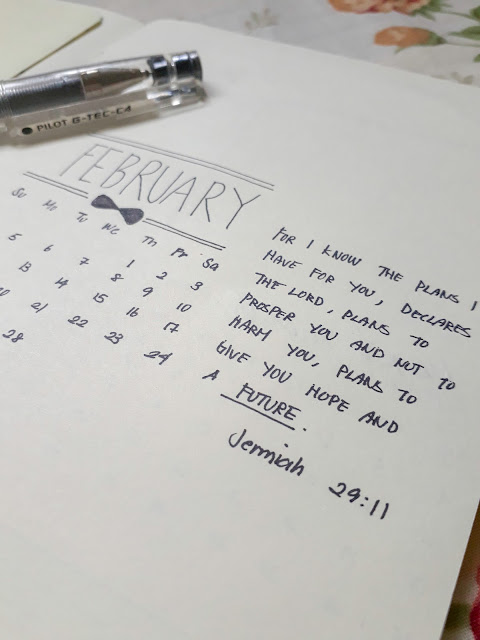 PILOT G-TEC-C4
FEBRUARY
Su Mo Tu We Th Fr Sa
1 2 3
5 6 7 8 9 10
13 14 15 16 17
21 22 23 24
28
FOR I KNOW THE PLANS I
HAVE FOR YOU, DECLARES
THE LORD, PLANS TO
PROSPER YOU AND NOT TO
HARM YOU, PLANS TO
GIVE YOU HOPE AND
A FUTURE.
Jermiah 29:11